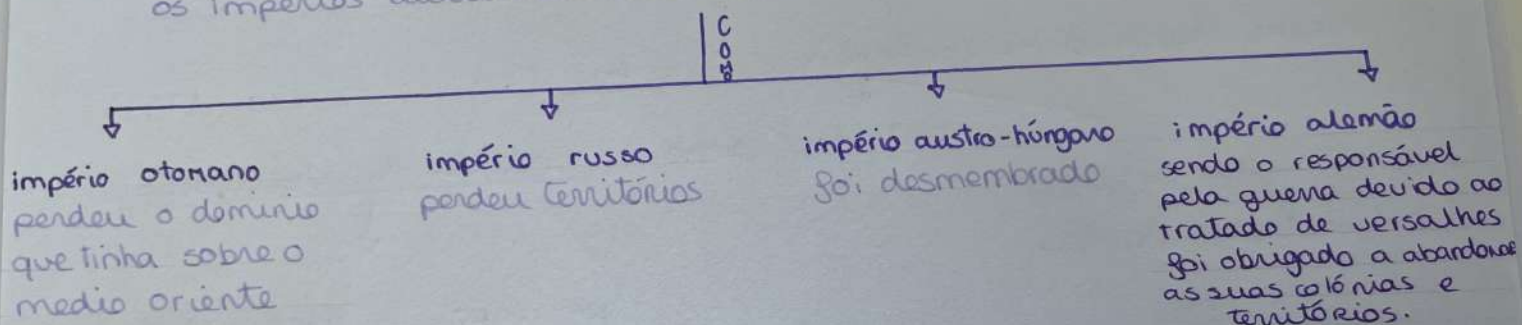 os impérios
COMO
império otomano
perdeu o dominio
que tinha sobre o
medio oriente
império russo
perdeu territórios
império austro-húngaro
foi desmembrado
império alemão
sendo o responsável
pela guerra devido ao
tratado de versalhes
foi obrigado a abandonar
as suas colónias e
territórios.